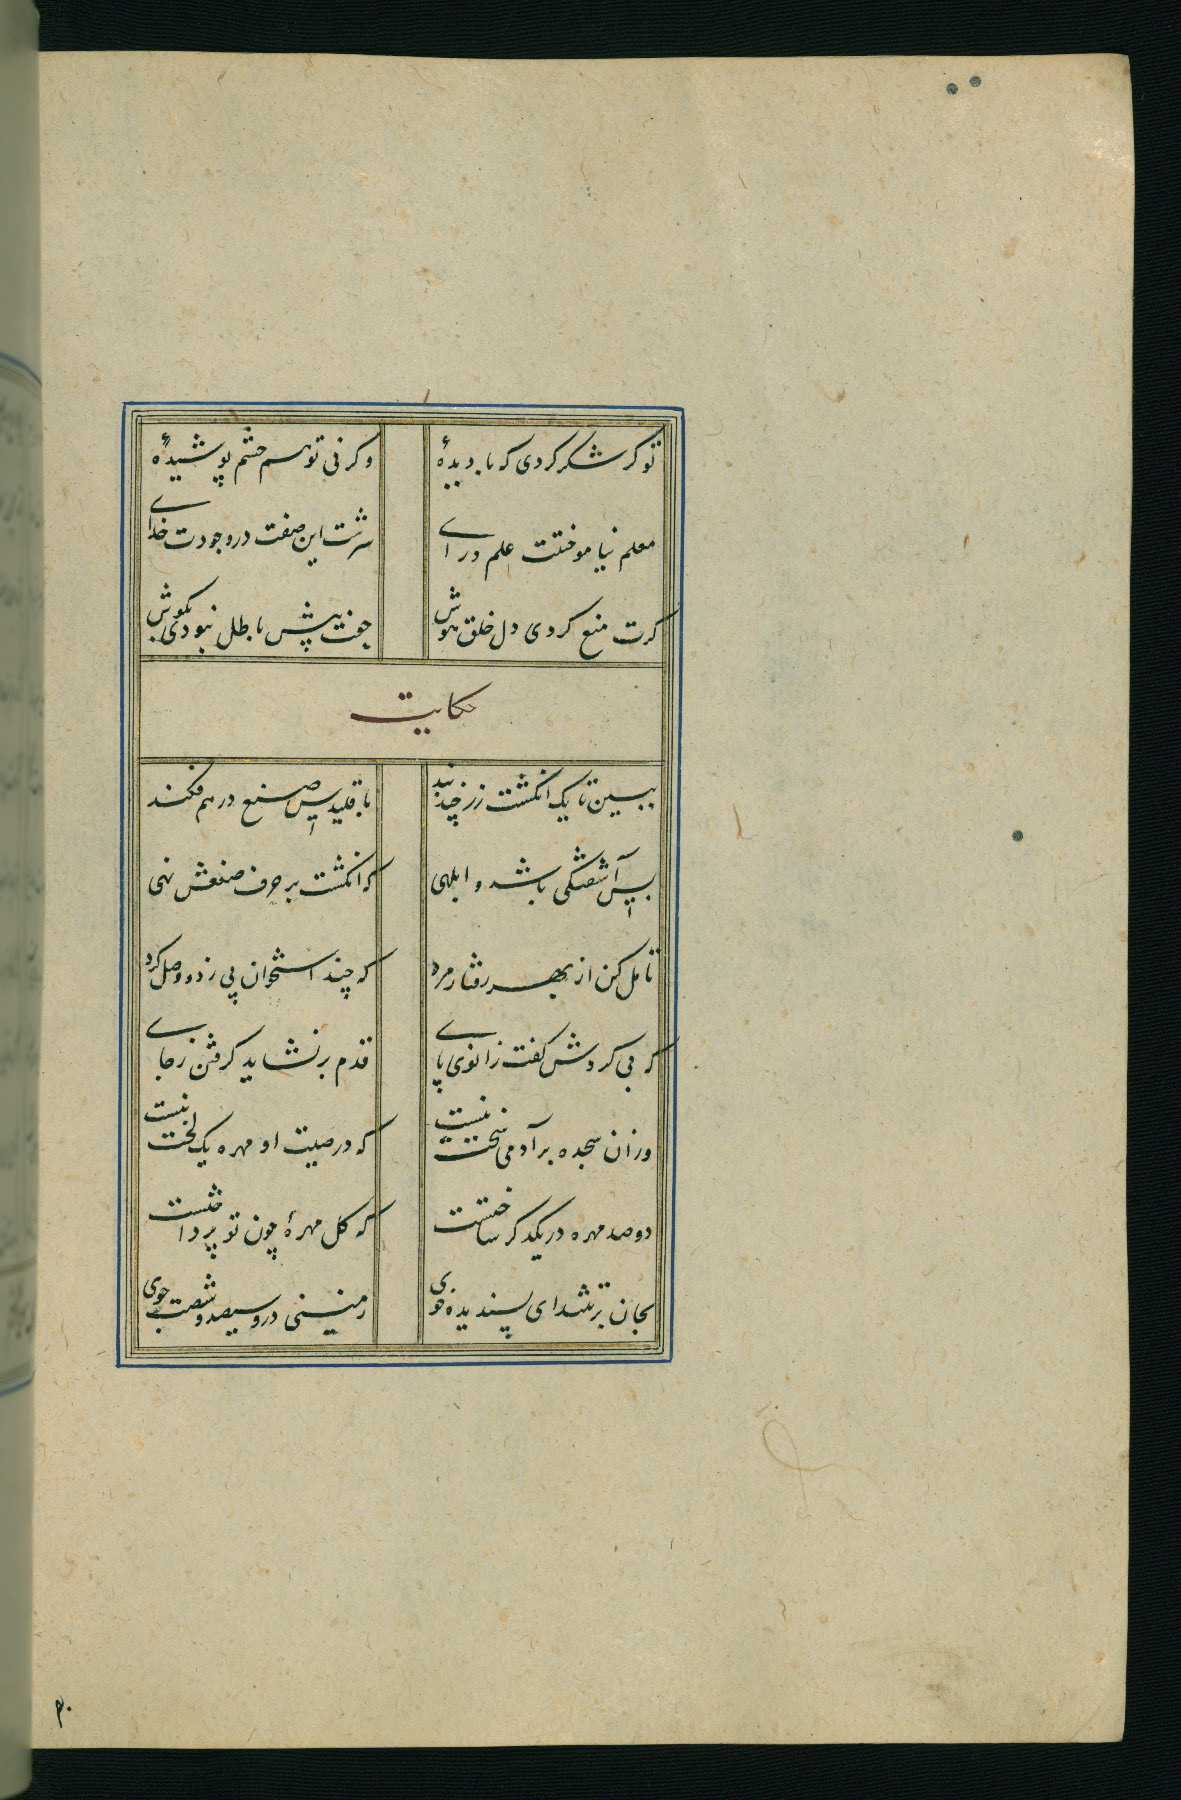 تو گر شکر کردی که با دیدهٔ
وگر نی تو هم چشم پوشیدهٔ
معلم نیاموختت علم و رای
سرشت این صفت در وجودت خدای
گرت منع کردی دل حق نیوش
حقت پیش باطل نبودی بگوش
حکایت
ببین تا یک انگشت از چند بند
باقلیدس صنع در هم فکند
پس آشفتگی باشد و ابلهی
که انگشت بر حرف صنعش نهی
تامل کن از بهر رفتار مرد
که چند استخوان پی زد و وصل کرد
که بی گردش کفت زانوی پای
قدم بر نشاید گرفتن ز جای
وزان سجده بر آدمی سخت نیست
که در صیت او مهره یک لخت نیست
دو صد مهره در یکدگر ساختست
که گل مهرهٔ چون تو پرداختست
بجان برتر شدای پسندیده خوی
زمینی درو سیصد و شصت جوی